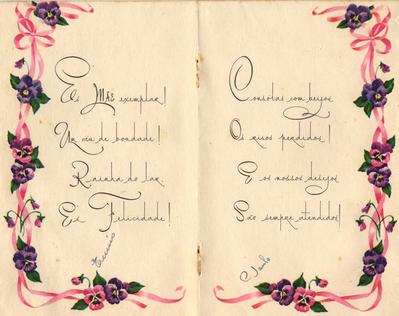 És MÃE exemplar!
Um céu de bondade!
Rainha do lar.
És Felicidade!
Consolas com beijos
Os risos perdidos!
E os nossos desejos
São sempre atendidos!